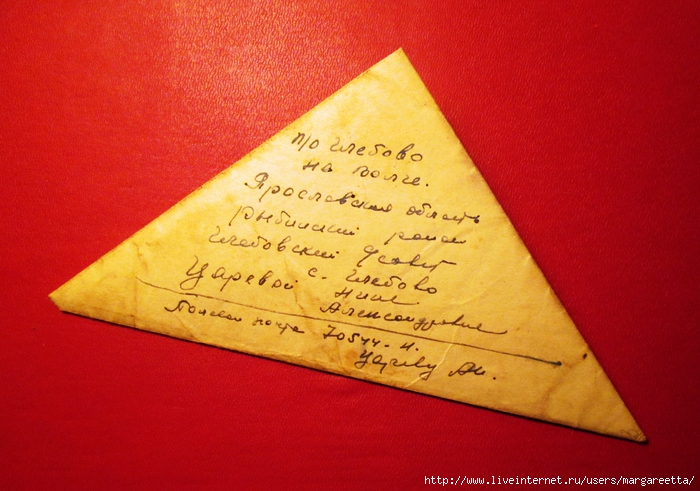 п/о Глебово
на Волге.
Ярославская область
Рыбинский район
Глебовский с/совет
с. Глебово
Царевой Нине
Александровне
Полевая почта 70544-Н.
Цареву Ан.
http://www.liveinternet.ru/users/margareetta/